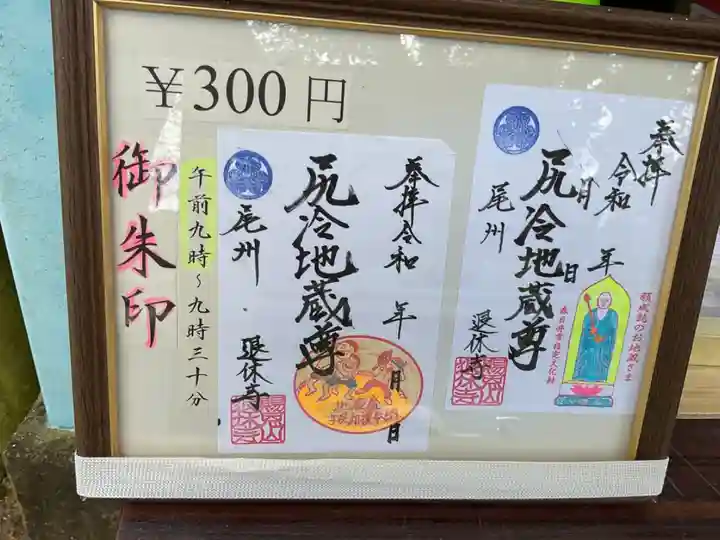 ¥300円
御朱印
午前九時～九時三十分
奉拝 令和 年 月 日
尻冷地蔵尊
尾州 退休寺
奉拝
令和 年 月 日
尻冷地蔵尊
尾州 退休寺
願成就のお地蔵さま
春日井市指定文化財